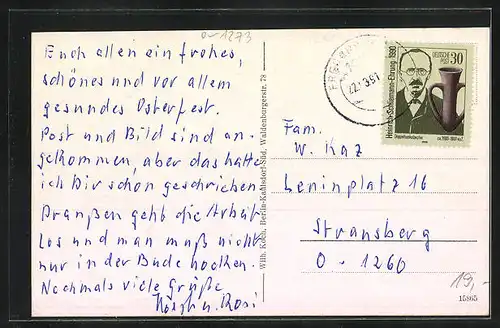 0-1273
Euch allen ein frohes,
schönes und vor allem
gesundes Osterfest.
Post und Bild sind an-
gekommen, aber das hatte
ich Dir schon geschrieben
Draußen geht die Arbeit
los und man muß nicht
nur in der Bude hocken.
Nochmals viele Grüße
u. Rosi
Wilh. Koch, Berlin-Kaulsdorf-Süd, Waldenburgerstr. 78
22.3.91
Heinrich-Schliemann-Ehrung 1990
DEUTSCHE
POST 30
Doppelhenkelbecher
Fam.
W. Kaz
Leninplatz 16
Stransberg
O - 1260
19,-
15865